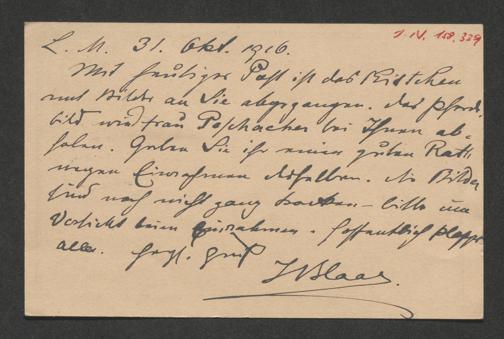 I. N. 158.339
L. M. 31. Okt. 1916.
Mit heutiger Post ist das Kistchen
mit Bilder an Sie abgegangen. Das Pferde-
bild wird Frau Poschacher bei Ihnen ab-
holen. Geben Sie ihr einen guten Rath
wegen Einrahmen desselben. Die Bilder
sind noch nicht ganz trocken – bitte um
Vorsicht beim Einrahmen. Hoffentlich klappt
alles. Herzl. Gruß
Blaas.